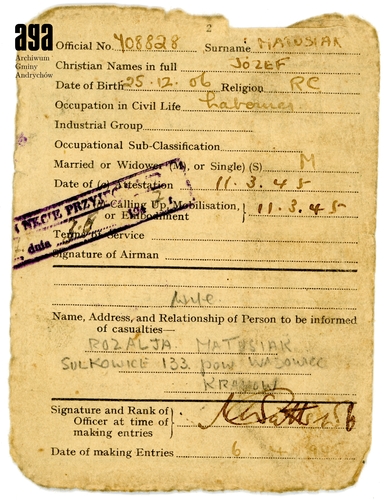 aga
Archiwum
Gminy
Andrychów
2
Official No. 708828 Surname MATUSIAK
Christian Names in full JÓZEF
Date of Birth 25.12.06 Religion RC
Occupation in Civil Life Labourer
Industrial Group
Occupational Sub-Classification
Married or Widower (M), or Single) (S) M
Date of (a) Attestation 11.3.45
Calling Up, Mobilisation, or Embodiment 11.3.45
NKCIE PRZYJ
dnia
Terms of Service
Signature of Airman
wife
Name, Address, and Relationship of Person to be informed
of casualties—
ROZALJA MATUSIAK
SUŁKOWICE 133 pow WADOWICE
KRAKOW
Signature and Rank of
Officer at time of
making entries
Date of making Entries 6